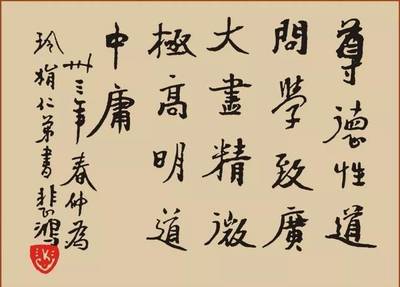 尊德性道
問學致廣
大盡精微
極高明道
中庸
卅三年春仲為
玲娟仁弟書悲鴻